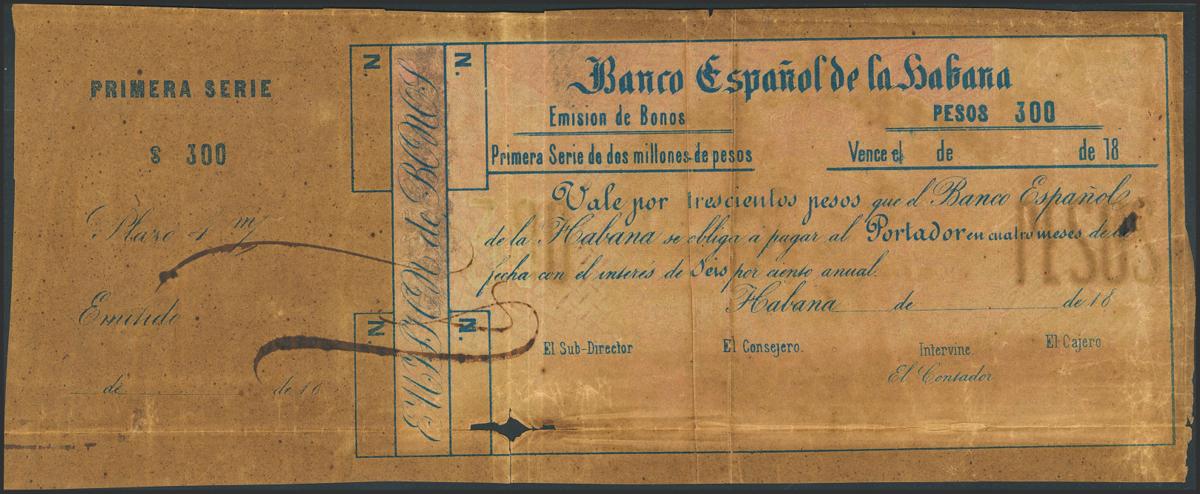 PRIMERA SERIE
$ 300
Plazo 4 m/
Emitido
de de 18
N.
N.
EMISION de BONOS
N.
N.
Banco Español de la Habana
Emision de Bonos
PESOS 300
Primera Serie de dos millones de pesos
Vence el de de 18
Vale por trescientos pesos que el Banco Español
de la Habana se obliga a pagar al Portador en cuatro meses de la
fecha con el interés de seis por ciento anual.
Habana de de 18
El Sub-Director
El Consejero.
Intervine.
El Contador
El Cajero.